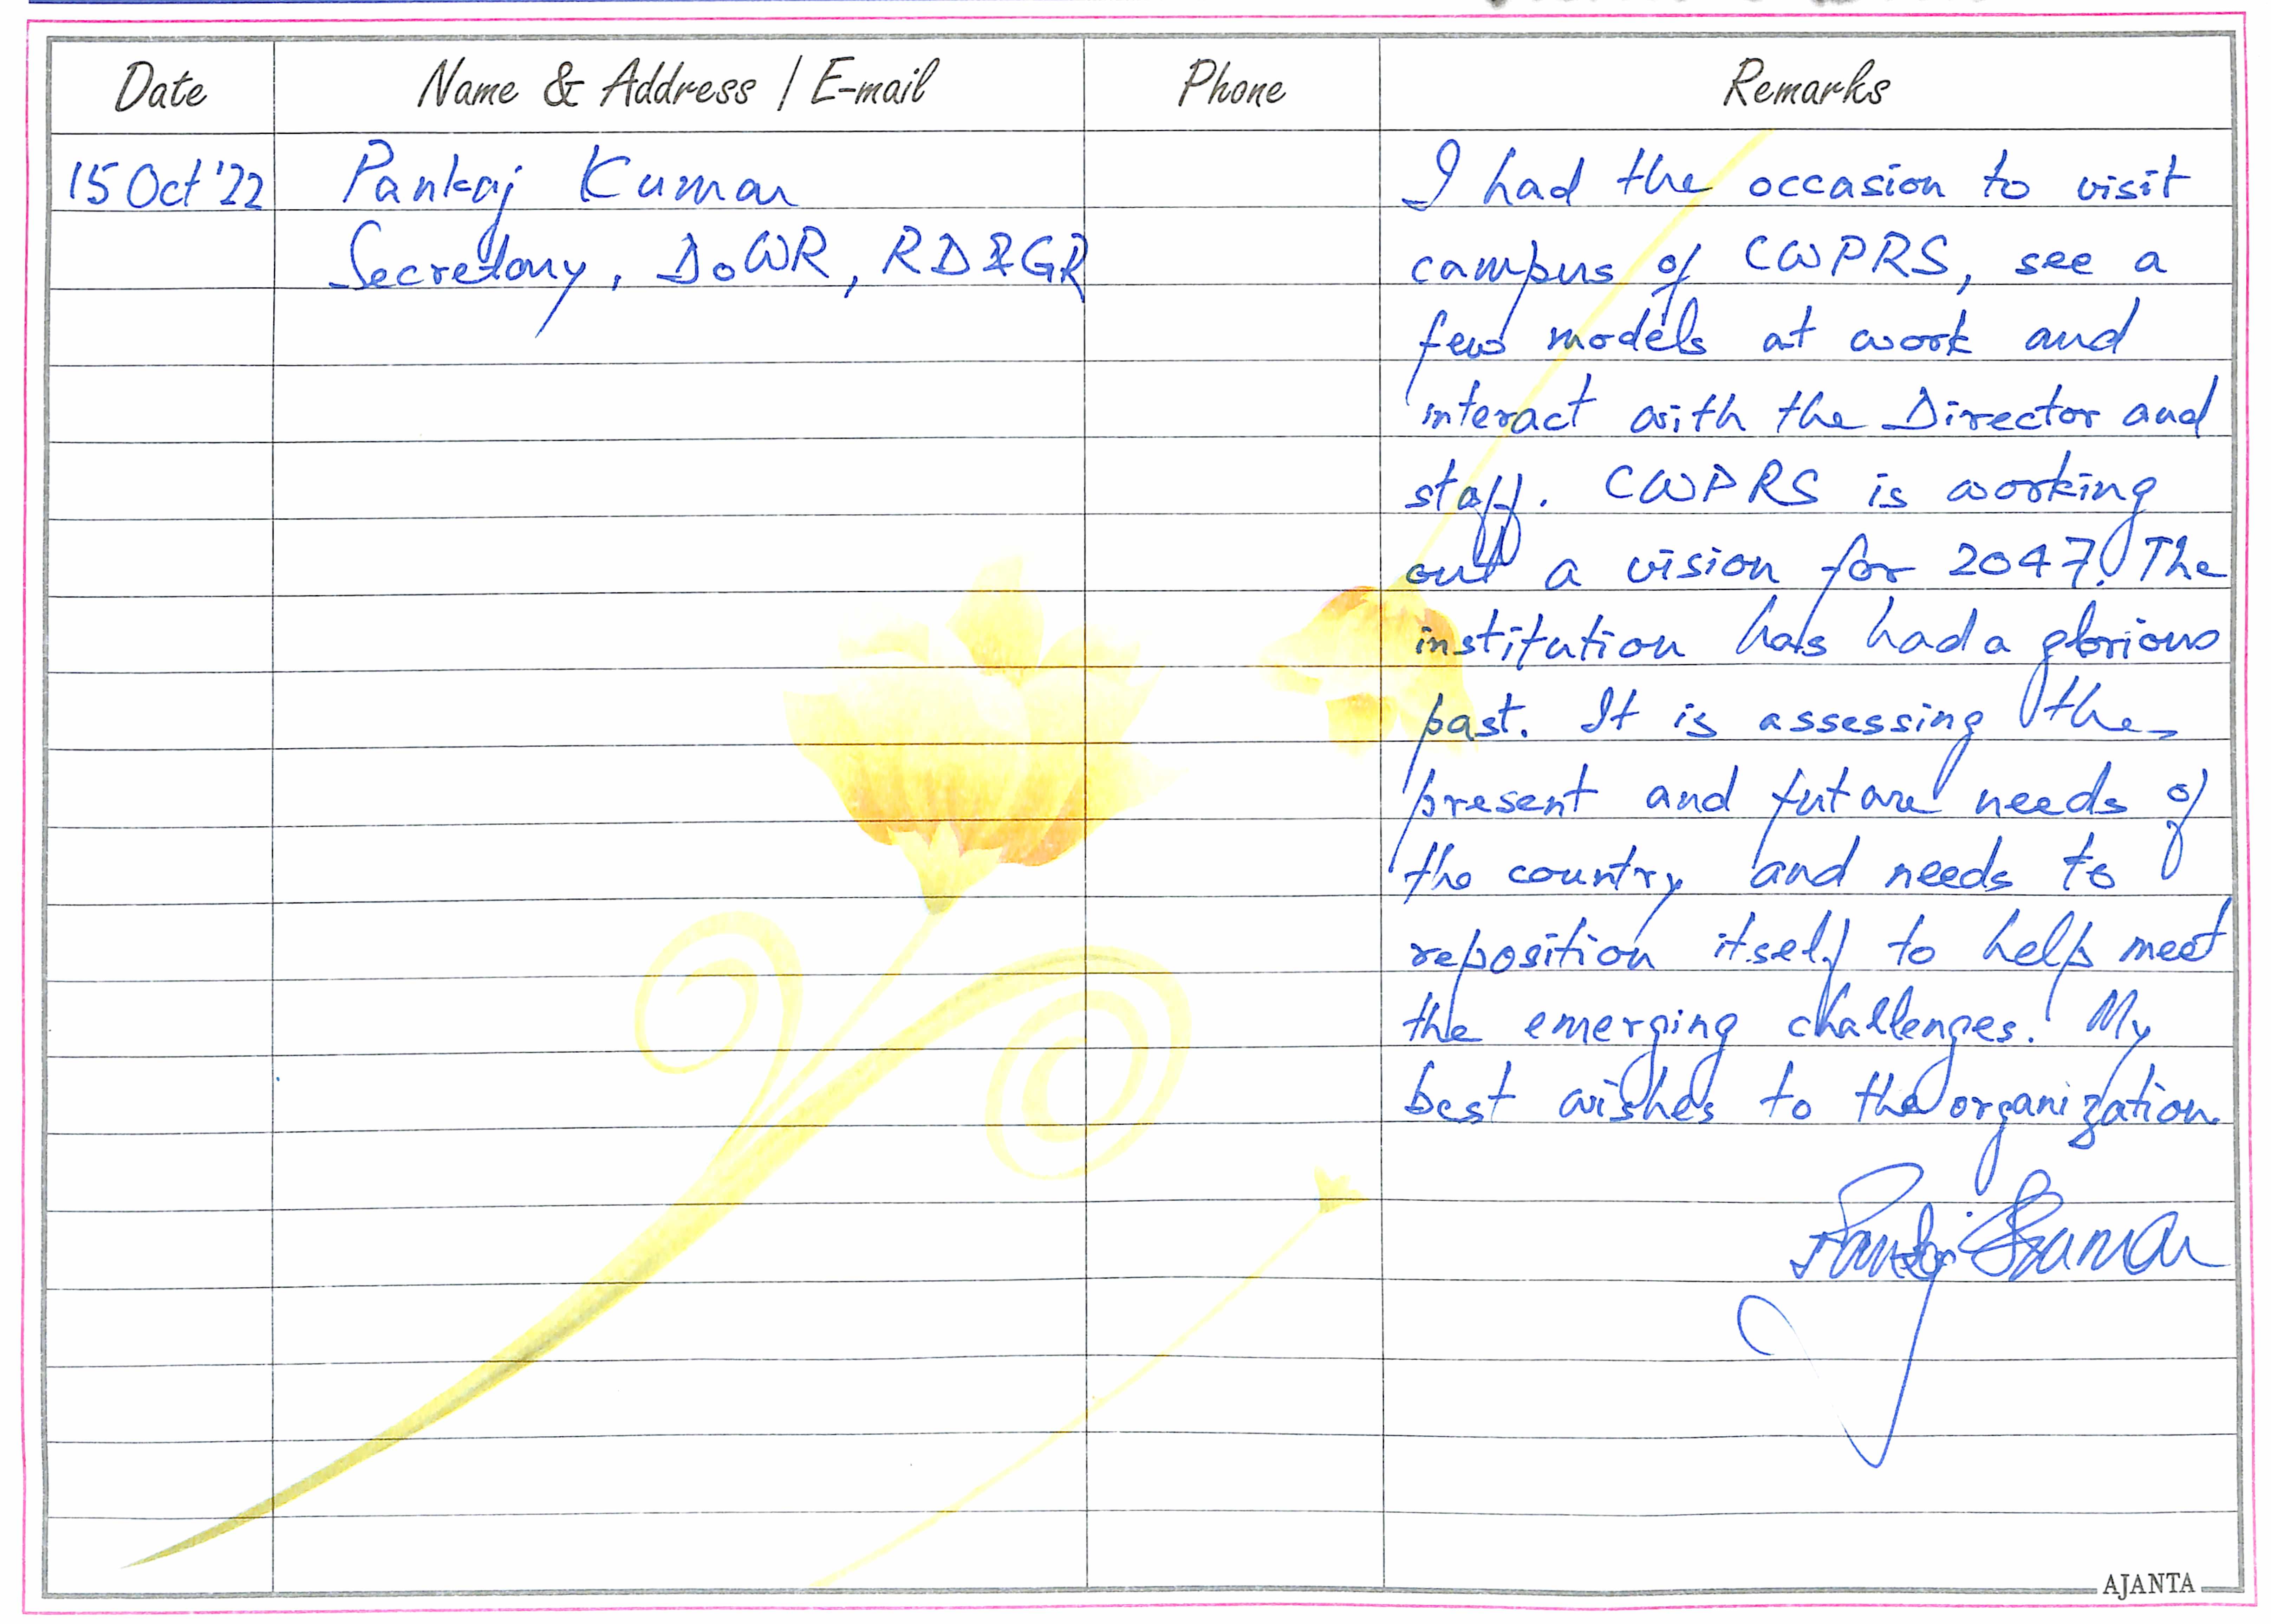 Date Name & Address / E-mail Phone Remarks
15 Oct '22 Pankaj Kumar I had the occasion to visit
Secretary, DoWR, RD & GR campus of CWPRS, see a
few models at work and
interact with the Director and
staff. CWPRS is working
out a vision for 2047. The
institution has had a glorious
past. It is assessing the
present and future needs of
the country and needs to
reposition itself to help meet
the emerging challenges. My
best wishes to the organization.
Pankaj Kumar
AJANTA